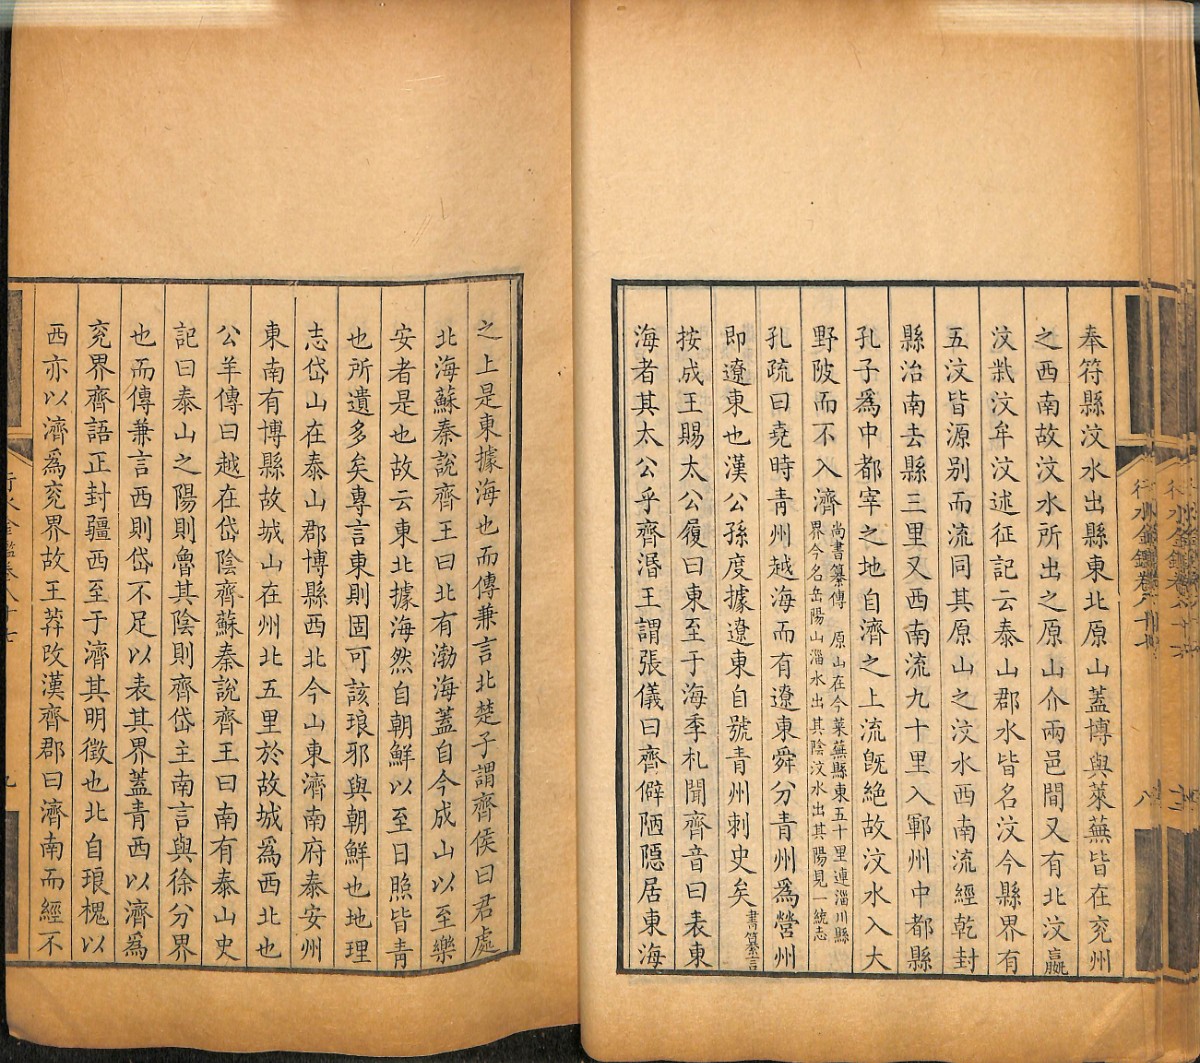 奉符縣汶水出縣東北原山蓋博與萊蕪皆在兖州
之西南故汶水所出之原山介兩邑間又有北汶嬴
汶柴汶牟汶述征記云泰山郡水皆名汶今縣界有
五汶皆源别而流同其原山之汶水西南流經乾封
縣治南去縣三里又西南流九十里入鄆州中都縣
孔子爲中都宰之地自濟之上流旣絶故汶水入大
野陂而不入濟尚書纂傳 原山在今萊蕪縣東五十里連淄川縣界今名岳陽山淄水出其陰汶水出其陽見一統志
孔疏曰堯時青州越海而有遼東舜分青州爲營州
即遼東也漢公孫度據遼東自號青州刺史矣書纂言
按成王賜太公履曰東至于海季札聞齊音曰表東
海者其太公乎齊湣王謂張儀曰齊僻陋隱居東海
之上是東據海也而傳兼言北楚子謂齊侯曰君處
北海蘇秦說齊王曰北有渤海蓋自今成山以至樂
安者是也故云東北據海然自朝鮮以至日照皆青
也所遺多矣專言東則固可該琅邪與朝鮮也地理
志岱山在泰山郡博縣西北今山東濟南府泰安州
東南有博縣故城山在州北五里於故城爲西北也
公羊傳曰越在岱陰齊蘇秦說齊王曰南有泰山史
記曰泰山之陽則魯其陰則齊岱主南言與徐分界
也而傳兼言西則岱不足以表其界蓋青西以濟爲
兖界齊語正封疆西至于濟其明徵也北自琅槐以
西亦以濟爲兖界故王莽改漢齊郡曰濟南而經不